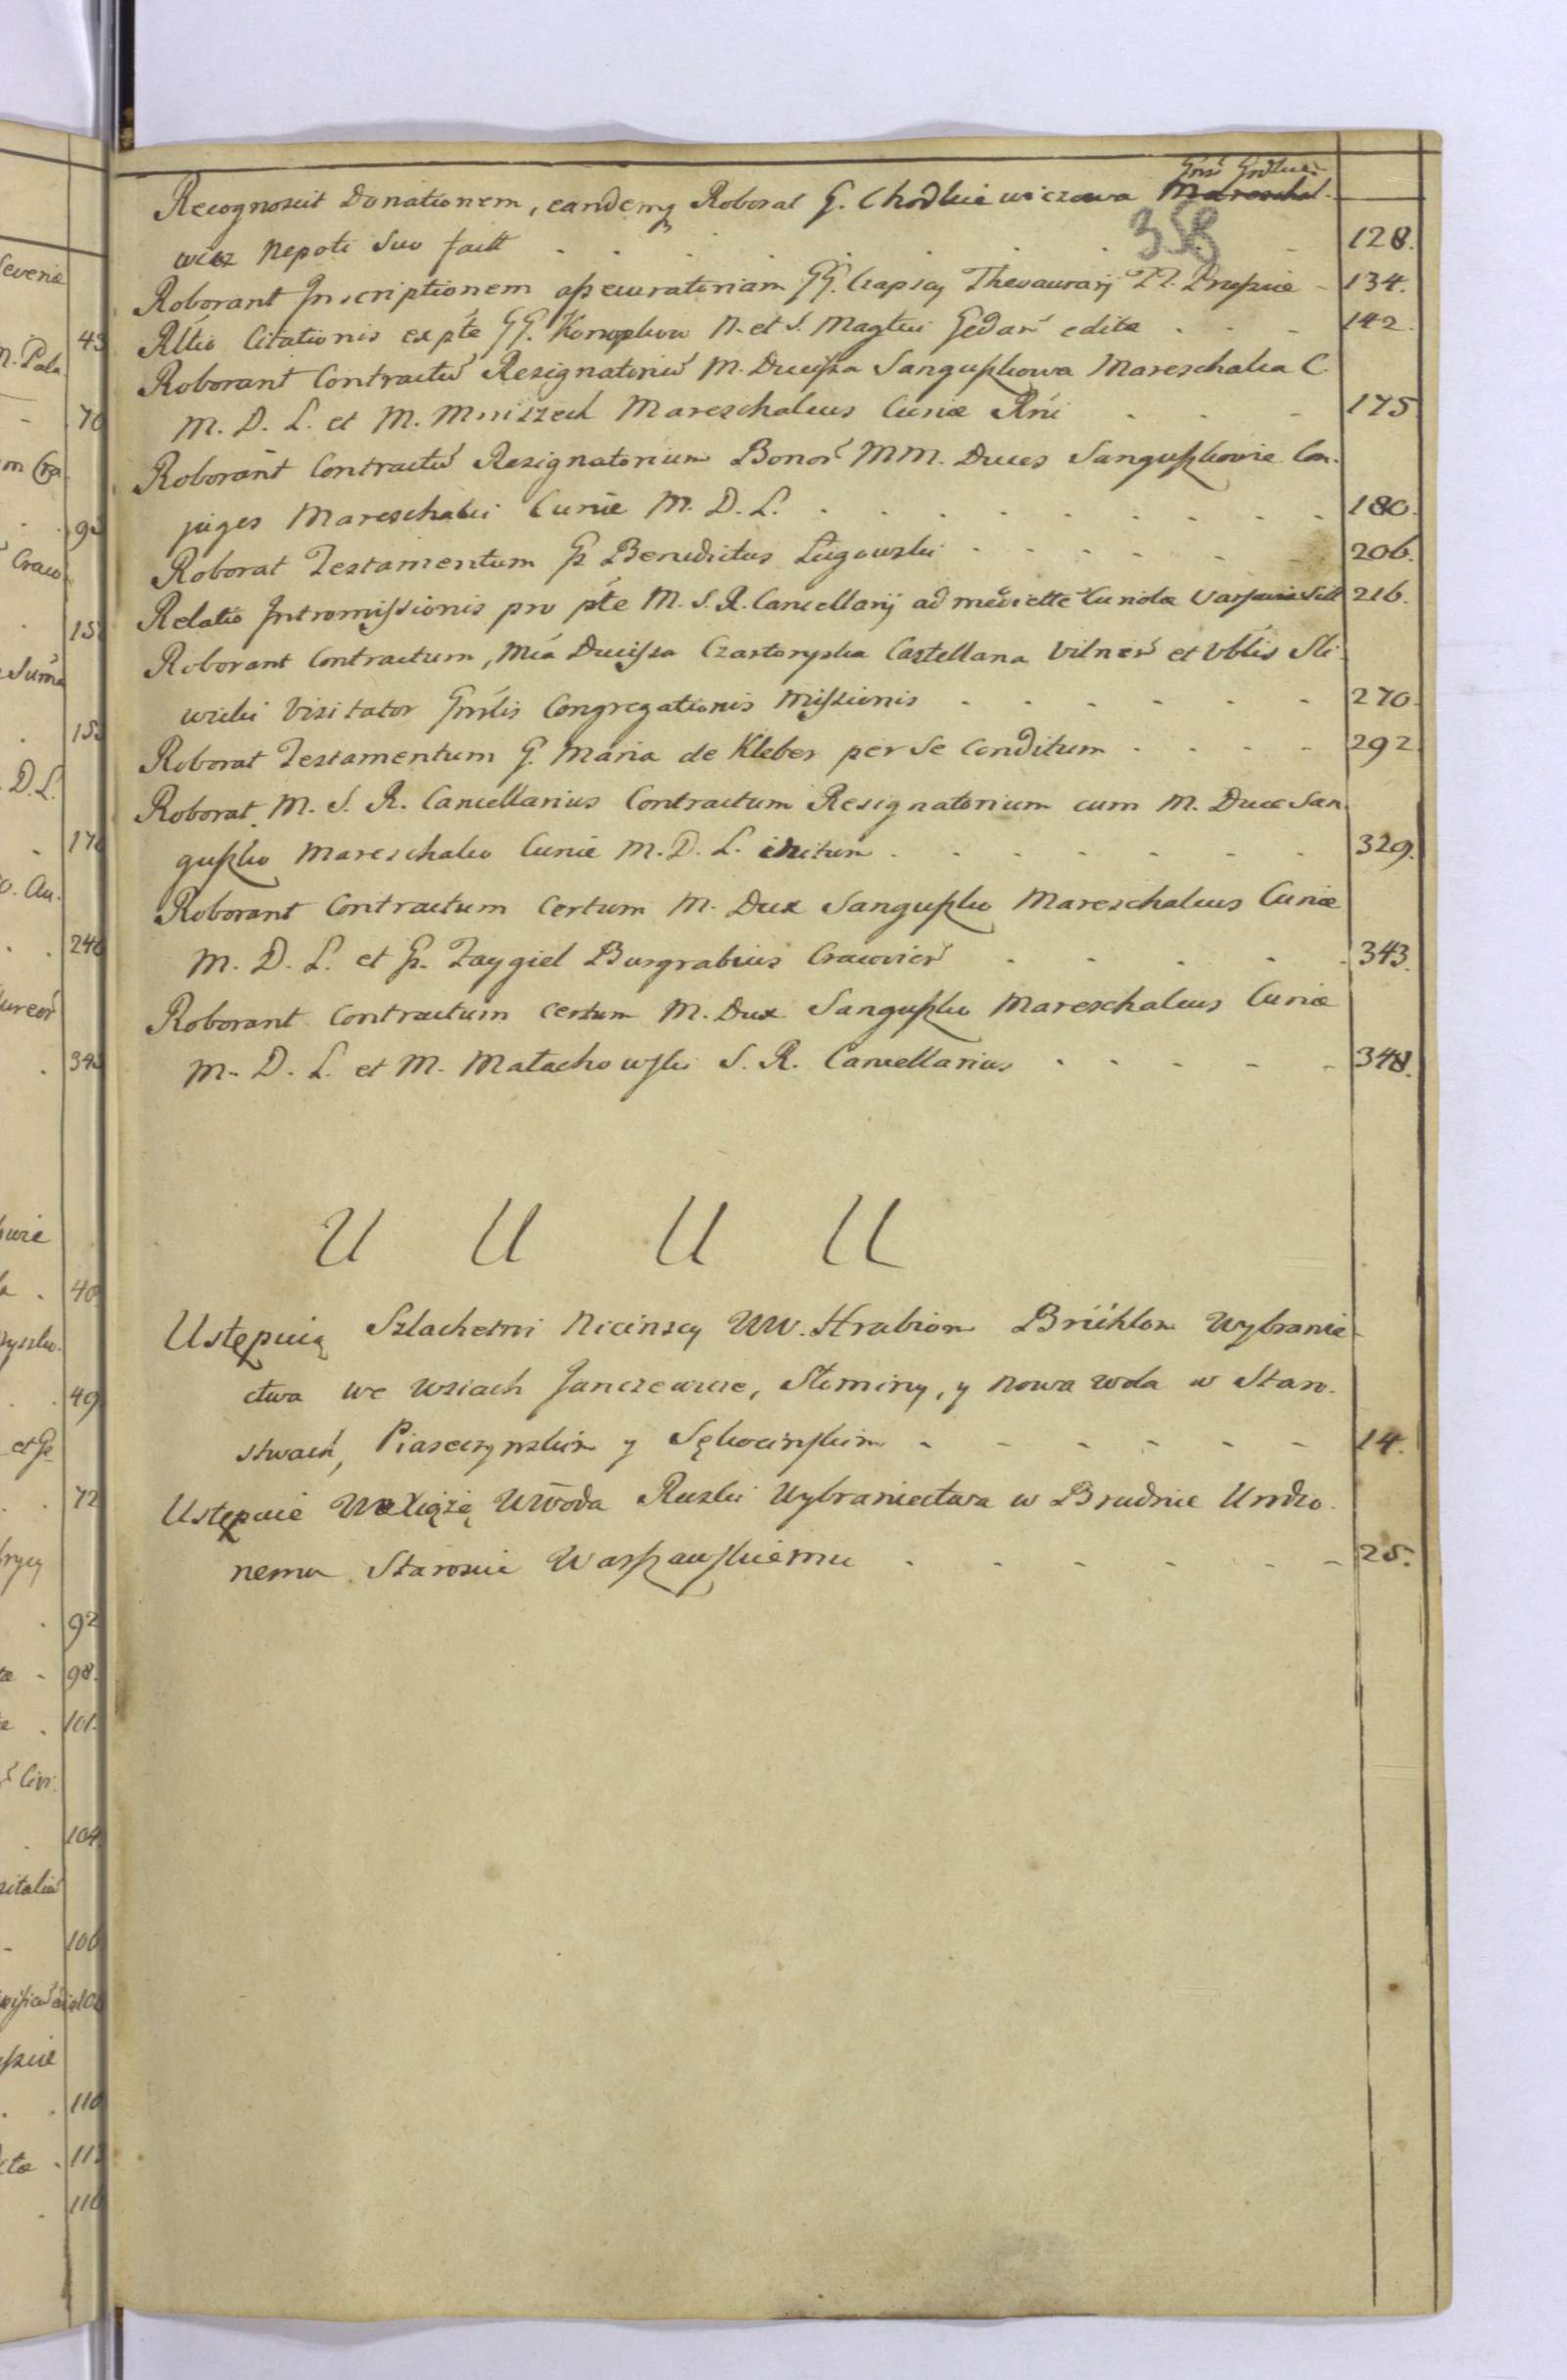 Gnsi Godlui
Recognoscit Donationem, eandemq Roborat G. Chodkiewiczowa Mareschal.
358
wicz Nepoti Suo fact . . . . . . 128.
Roborant Inscriptionem assecuratoriam GG. Czapscy Thesaurarij TT. Prussiæ - 134.
Rltio Citationis ex pte GG. Konopkow N. et S. Magtui Gedan edita . . . 142.
Roborant Contractu Resignatoriu M. Ducissa Sanguszkowa Mareschalca C.
M. D. L. et M. Mniszech Mareschalcus Curiæ Rni . . . 175
Roborant Contractu Resignatorium Bonor MM. Duces Sanguszkovie Con.
juges Mareschalci Curiæ M. D. L. . . . . . . . . 180.
Roborat Testamentum Gs Benedictus Ługowski . . . . . . 206.
Relatio Intromissionis pro pte M. S. R. Cancellarij ad medietté Curiolæ Varsaviæ Sitt 216.
Roborant Contractum, Mca Ducissa Czartoryska Castellana Vilnen et Vblis Sli-
wicki Visitator Gnrlis Congregationis Missionis . . . . . . 270.
Roborat Testamentum G. Maria de Kleber per se Conditum . . . . 292
Roborat M. S. R. Cancellarius Contractum Resignatorium cum M. Duce San.
guszko Mareschalco Curiæ M. D. L. initum . . . . . . . 329.
Roborant Contractum Certum M. Dux Sanguszko Mareschalcus Curiæ
M. D. L. et Gs. Zaygiel Burgrabius Cracovien . . . . . 343.
Roborant Contractum certum M. Dux Sanguszko Mareschalcus Curiæ
M. D. L. et M. Małachowski S. R. Cancellarius . . . . . 348.
U U U U
Ustępuią Szlachetni Nicinscy UW. Hrabiom Brühlom Wybranie-
ctwa we wsiach Janczewice, Słominy, y Nowa wola w Staro.
stwach, Piaseczynskim y Sękocinskim - - - - - - 14.
Ustępuie Xiążę UWoda Ruski Wybraniectwa w Brudnie Urodzo.
nemu Staroscie Warszawskiemu . . . . . . 25.